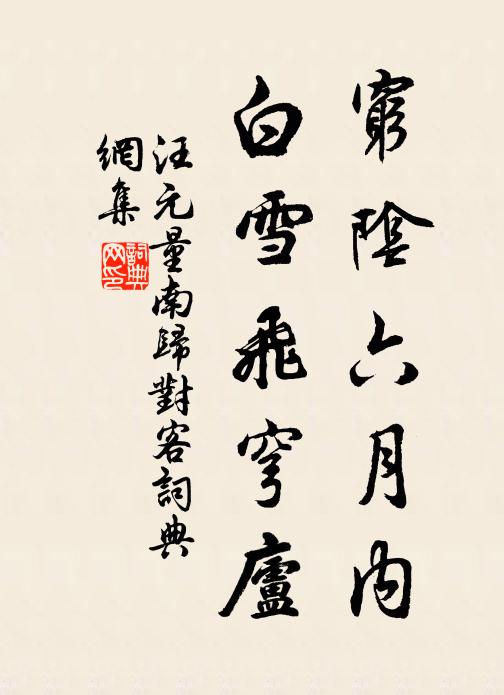 窮陰六月內
白雪飛穹廬
汪元量南歸對客詞典
網集
詞典
网印